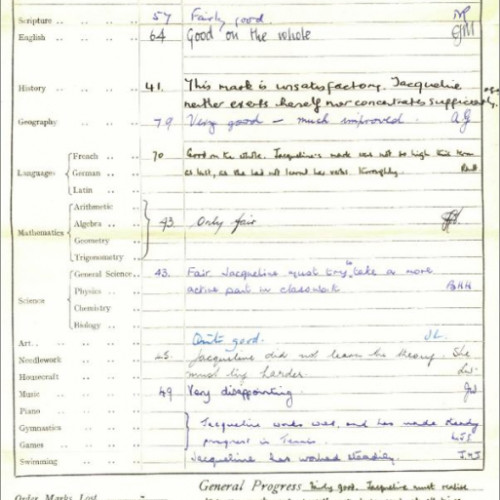 Scripture 57 Fairly good. NP
English 64 Good on the whole GM
History 41. This mark is unsatisfactory. Jacqueline
neither exerts herself nor concentrates sufficiently.
Geography 79 Very good - much improved. A.G
French 70 Good on the whole. Jacqueline's mark was not so high this term
Languages German as last, as she had not learnt her verbs thoroughly.
Latin
Arithmetic
Mathematics Algebra 43. Only fair
Geometry
Trigonometry
General Science 43. Fair Jacqueline must try to take a more
Science Physics active part in classwork
Chemistry
Biology
Art Quite good. J.L.
Needlework 45. Jacqueline did not learn the theory. She
Homecraft must try harder.
Music 49 Very disappointing
Piano
Gymnastics Jacqueline works well, and has made steady
Games progress in Tennis.
Swimming Jacqueline has worked steadily.
General Progress Fairly good. Jacqueline must realise
Order Marks Lost